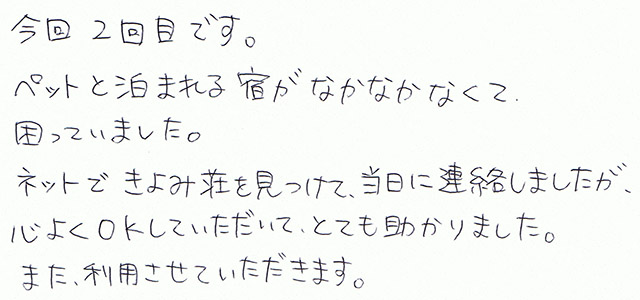 今回 2回目です。
ペットと泊まれる宿がなかなかなくて、
困っていました。
ネットできよみ荘を見つけて、当日に連絡しましたが、
心よくOKしていただいて、とても助かりました。
また、利用させていただきます。